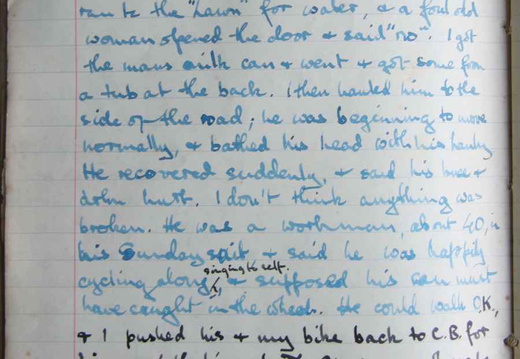 ran to the "Lawn" for water, & a foul old
woman opened the door & said "no". I got
the mans milk can & went & got some from
a tub at the back. I then hauled him to the
side of the road; he was beginning to move
normally, & bathed his head with his hanky
He recovered suddenly, & said his knee &
arm hurt. I don't think anything was
broken. He was a workman, about 40, in
his Sunday suit & said he was happily
cycling along singing to self. & supposed his can must
have caught in the wheel. He could walk O.K.,
& I pushed his & my bike back to C.B. for